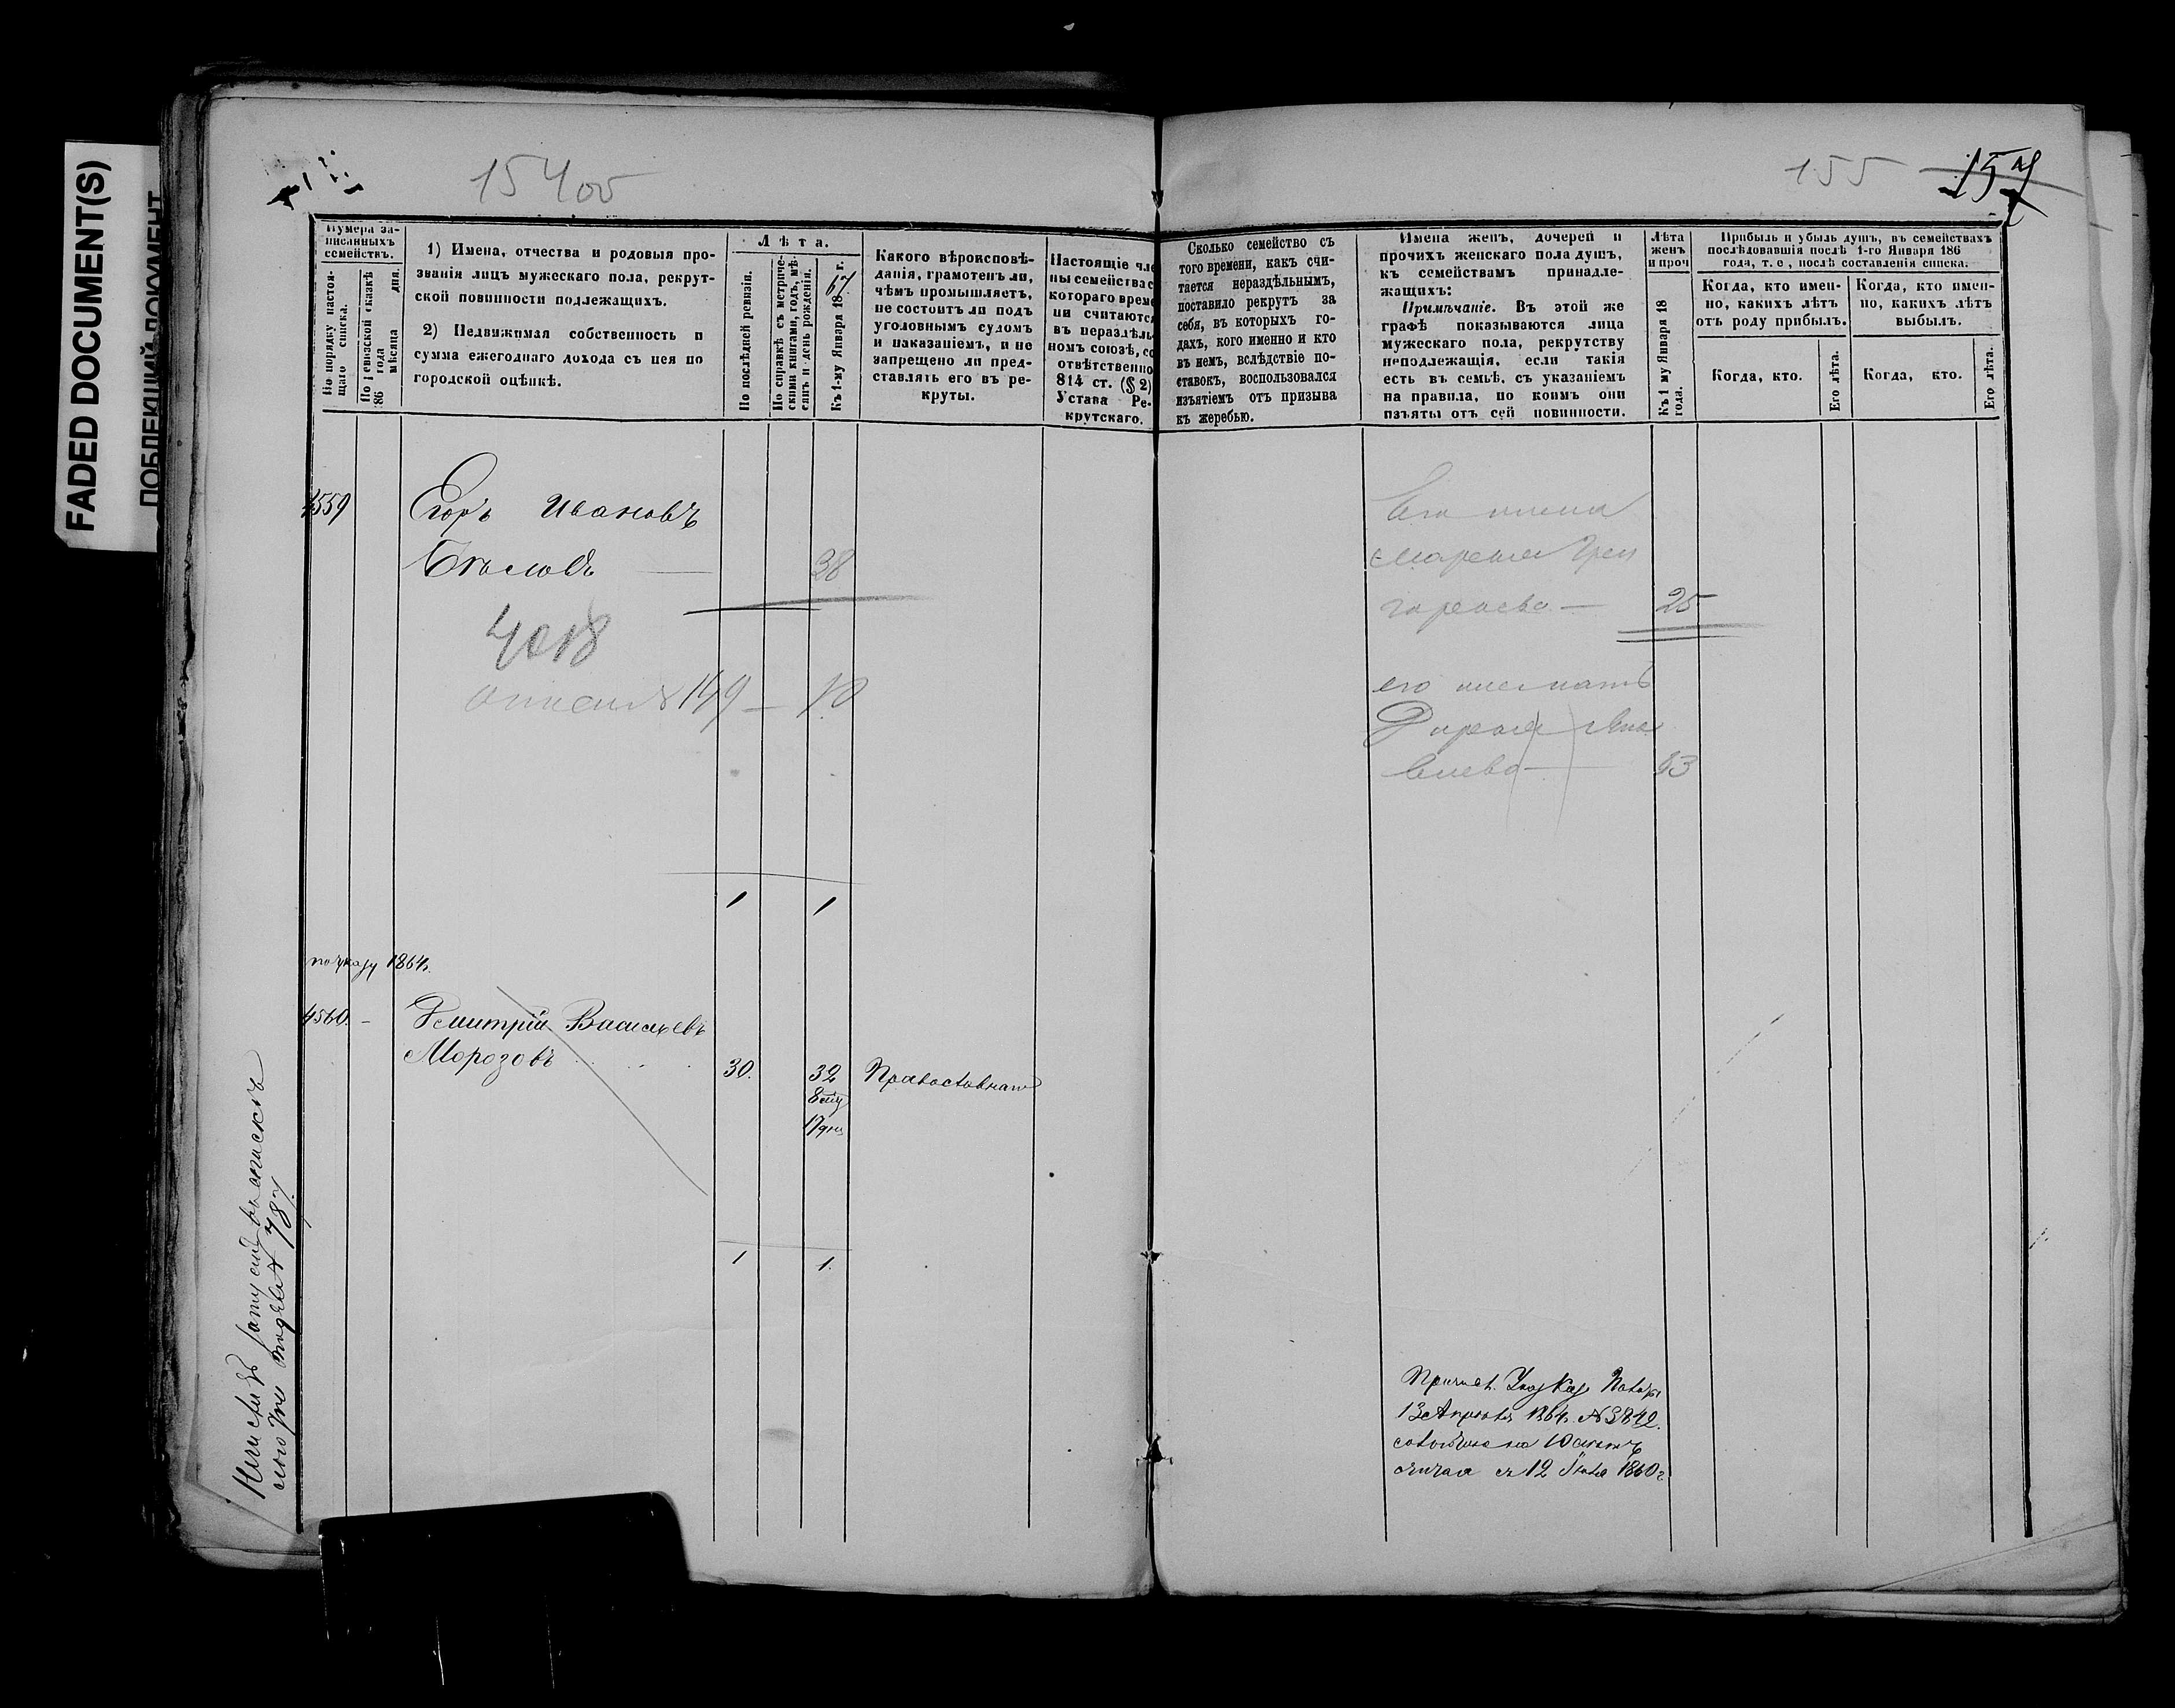 FADED DOCUMENT(S)
154об
155
157
Нумера записанныхъ семействъ.
По порядку настоящаго списка.
По ревизской сказкѣ 186 года мѣсяца дня.
1) Имена, отчества и родовыя про-
званія лицъ мужескаго пола, рекрут-
ской повинности подлежащихъ.
2) Недвижимая собственность и
сумма ежегоднаго дохода съ нея по
городской оцѣнкѣ.
Лѣта.
По послѣдней ревизіи.
По справкѣ съ метриче-
скими книгами, годъ, мѣ-
сяцъ и день рожденія.
Къ 1-му Января 1867 г.
Какого вѣроисповѣ-
данія, грамотенъ ли,
чѣмъ промышляетъ,
не состоитъ ли подъ
уголовнымъ судомъ
и наказаніемъ, и не
запрещено ли пред-
ставлять его въ ре-
круты.
Настоящіе чле
ны семейства с
котораго време
ни считаются
въ нераздѣль-
номъ союзѣ, со
отвѣтственно
814 ст. (§ 2)
Устава Ре-
крутскаго.
Сколько семейство съ
того времени, какъ счи-
тается нераздѣльнымъ,
поставило рекрутъ за
себя, въ которыхъ го-
дахъ, кого именно и кто
въ немъ, вслѣдствіе по-
ставокъ, воспользовался
изъятіемъ отъ призыва
къ жеребью.
Имена женъ, дочерей и
прочихъ женскаго пола душъ,
къ семействамъ принадле-
жащихъ:
Примѣчаніе. Въ этой же
графѣ показываются лица
мужескаго пола, рекрутству
неподлежащія, если такія
есть въ семьѣ, съ указаніемъ
на правила, по коимъ они
изъяты отъ сей повинности.
Лѣта
женъ
и проч
Къ 1 му Января 18
года.
Прибыль и убыль душъ, въ семействахъ
послѣдовавшія послѣ 1-го Января 186
года, т. е, послѣ составленія списка.
Когда, кто имен-
но, какихъ лѣтъ
отъ роду прибылъ.
Когда, кто имен-
но, какихъ лѣтъ
выбылъ.
Когда, кто.
Его лѣта.
Когда, кто.
Его лѣта.
4559
Егоръ Ивановъ
Бѣловъ
38
4018
149
Его жена
Марья Гри
горьева — 25
его мать
Дарья
63
1 1
по указу 1864г.
4560. –
Дмитрій Васильевъ
Морозовъ
30.
32
8 мѣ
17 дн
Православнаго
1 1.
787
13 Апрѣля 1864г. № 3842.
считая съ 12 1860г